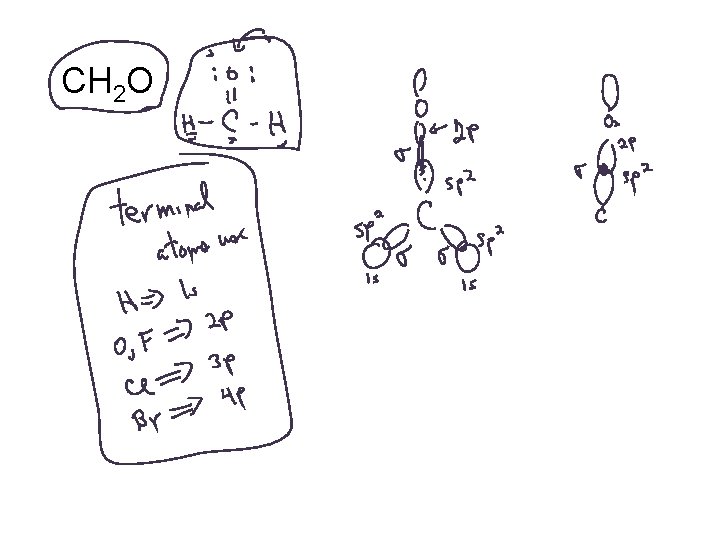 CH2O
:O:
H-C-H
terminal
atoms use
H⇒1s
O,F⇒2p
Cl⇒3p
Br⇒4p
O
2p
σ
sp²
C
sp²
σ
σ
sp²
1s
1s
2p
σ
sp²
C